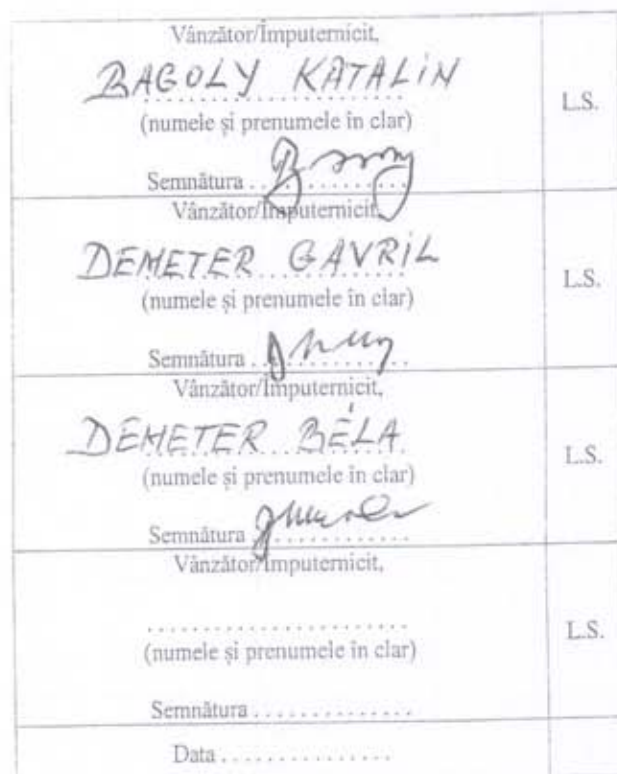 Vânzător/Împuternicit,
BAGOLY KATALIN
(numele și prenumele în clar)
L.S.
Semnătura . . . . . . . . . . . . . .
Vânzător/Împuternicit,
DEMETER GAVRIL
(numele și prenumele în clar)
L.S.
Semnătura . . . . . . . . . . . . . .
Vânzător/Împuternicit,
DEMETER BÉLA
(numele și prenumele în clar)
L.S.
Semnătura . . . . . . . . . . . . . .
Vânzător/Împuternicit,
. . . . . . . . . . . . . . . . . . . . . . .
(numele și prenumele în clar)
L.S.
Semnătura . . . . . . . . . . . . . .
Data . . . . . . . . . . . . . . .